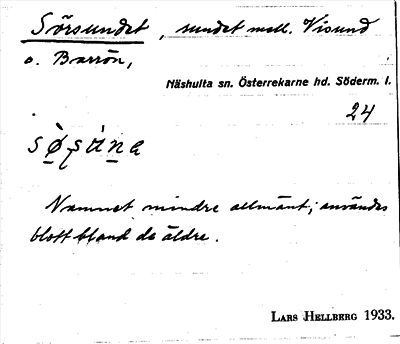 Sörsundet, sundet mell. Visund
o. Barrön,
Näshulta sn. Österrekarne hd. Söderm. l.
24
Namnet mindre allmänt; användes
blott bland de äldre.
LARS HELLBERG 1933.